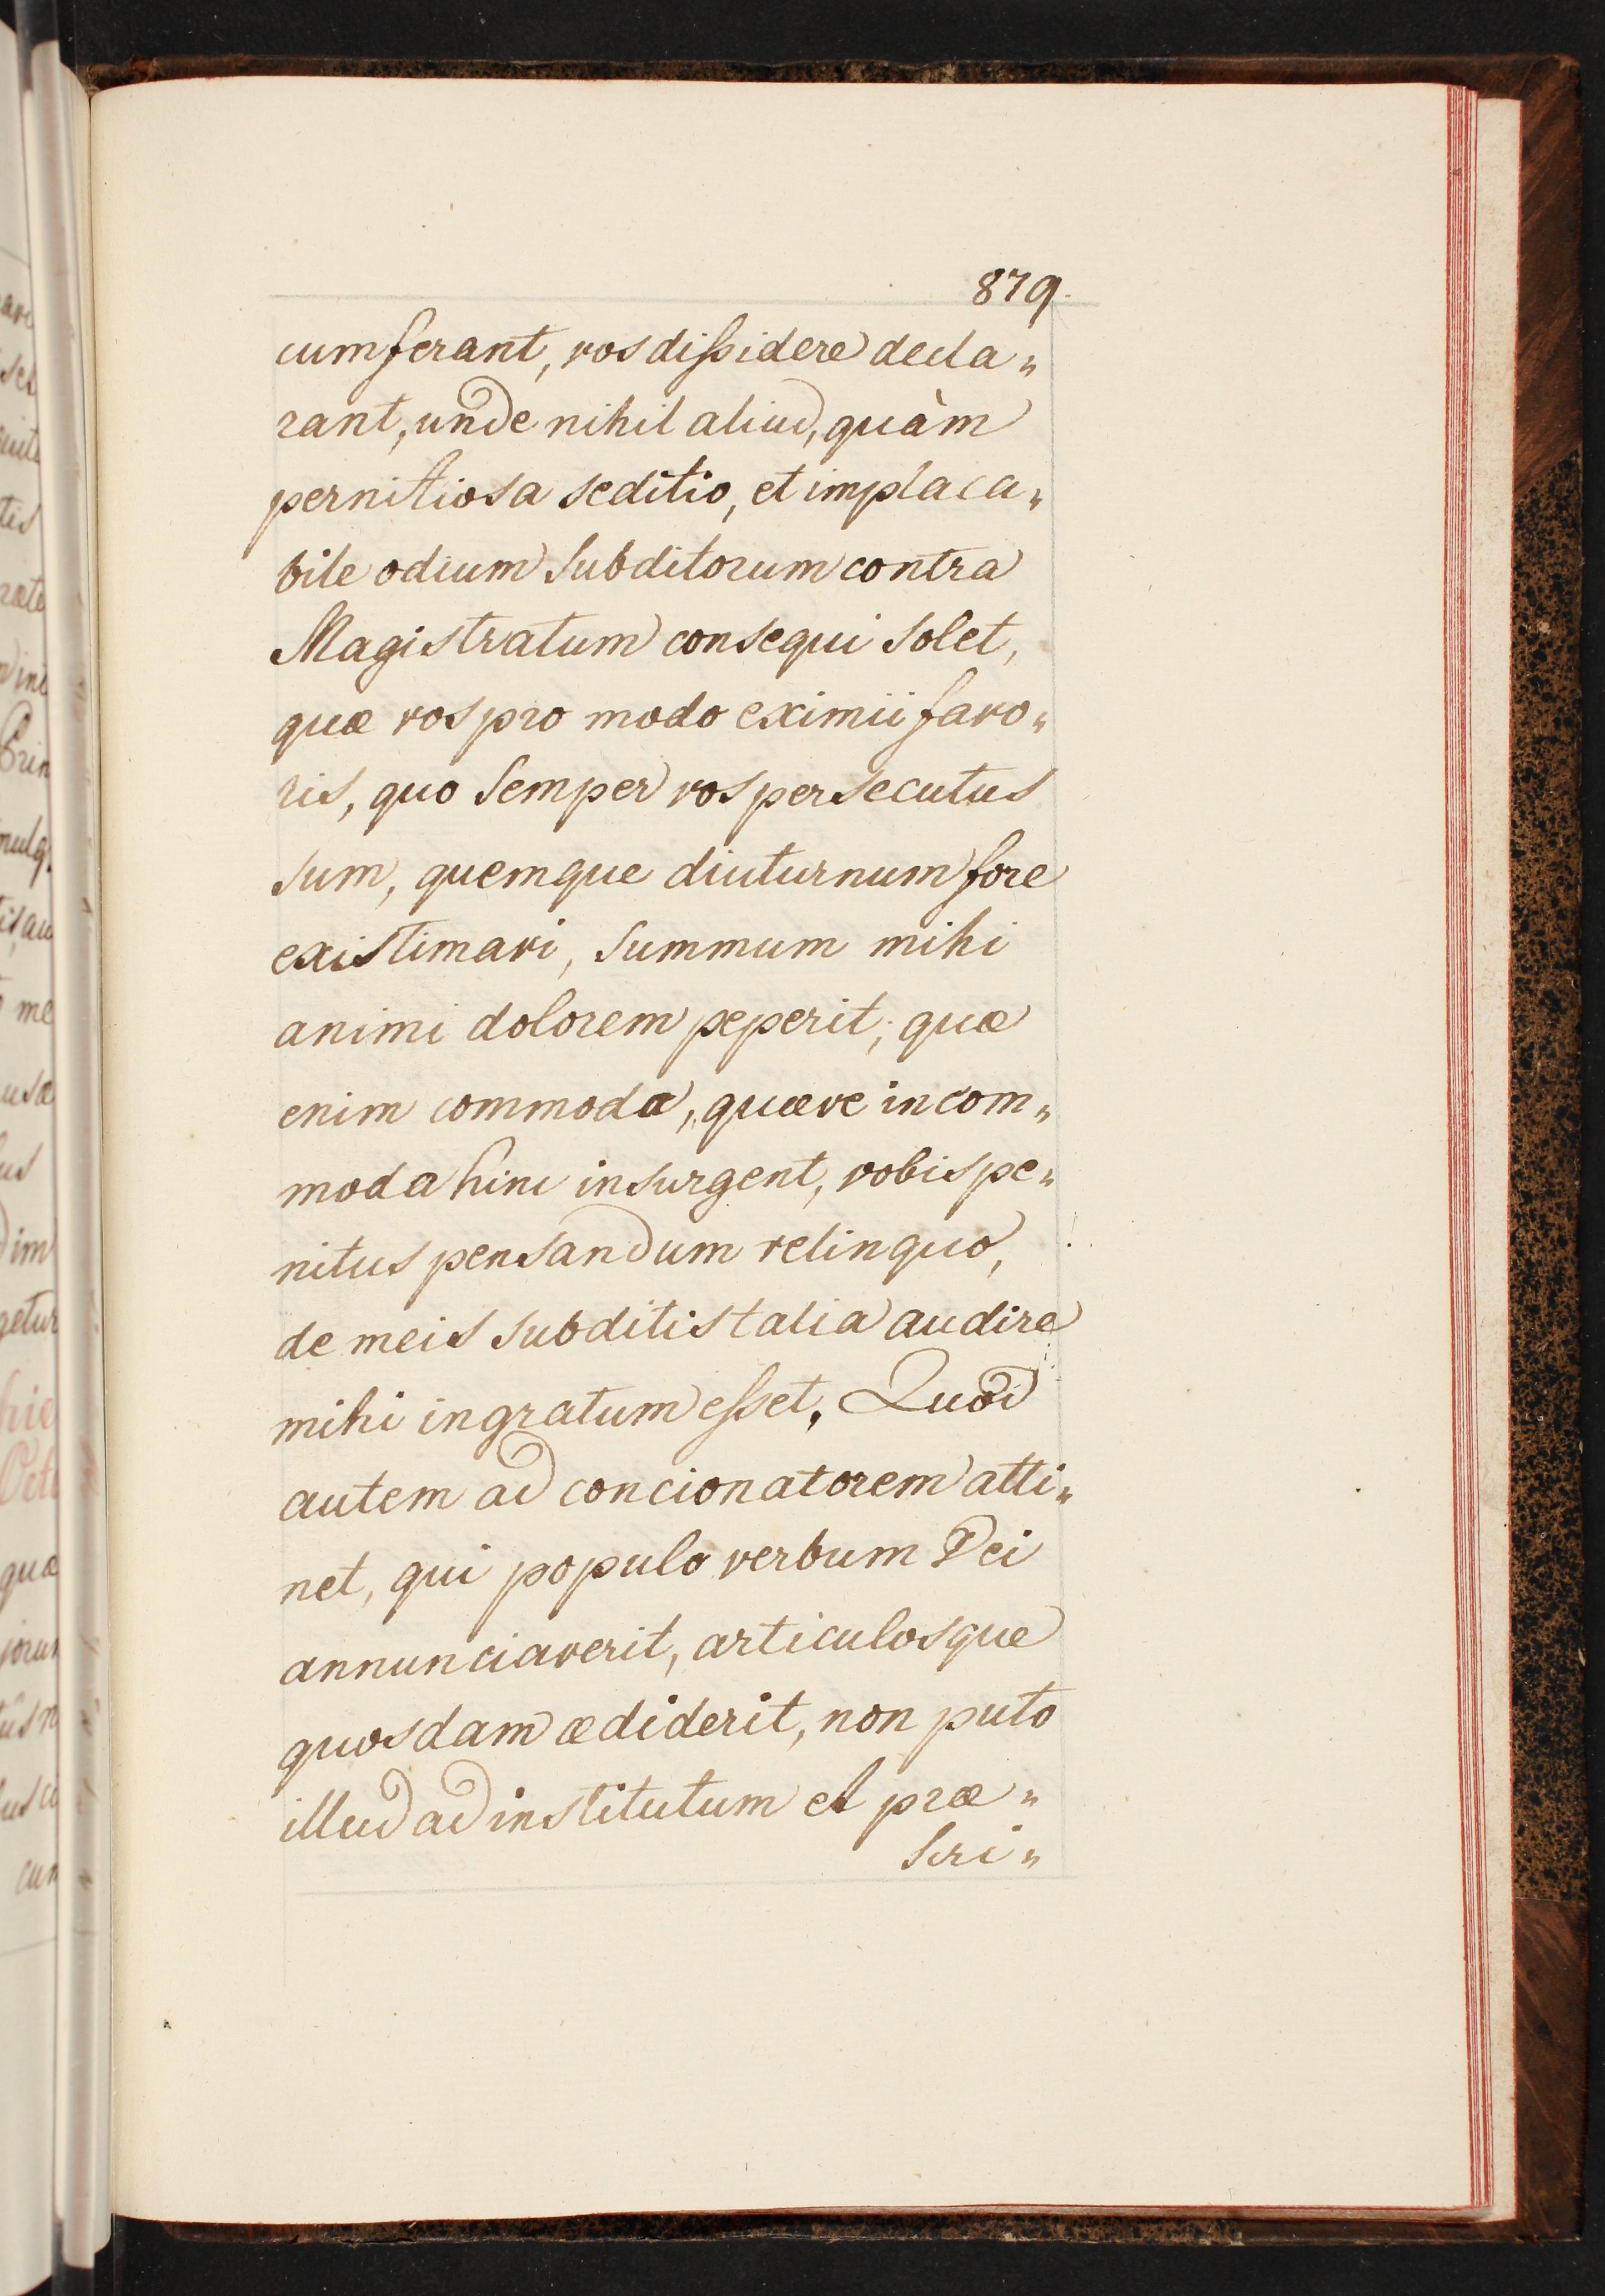 879.
cumferant, vos dissidere decla„
rant, unde nihil aliud, quàm
pernitiosa seditio, et implaca„
bile odium subditorum contra
Magistratum consequi solet,
quæ vos pro modo eximii favo„
ris, quo semper vos persecutus
sum, quemque diuturnum fore
existimavi, summum mihi
animi dolorem peperit; quæ
enim commoda, quæve incom„
moda hinc insurgent, vobis pe„
nitus pensandum relinquo,
de meis subditis talia audire
mihi ingratum esset. Quod
autem ad concionatorem atti„
net, qui populo verbum Dei
annunciaverit, articulosque
quosdam ædiderit, non puto
illud ad institutum et præ„
scri„